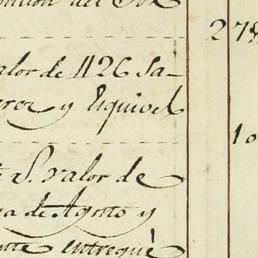 del
278
alor de 1126 Sa-
y Esquivel
10
S. valor de
de Agosto y
entregué